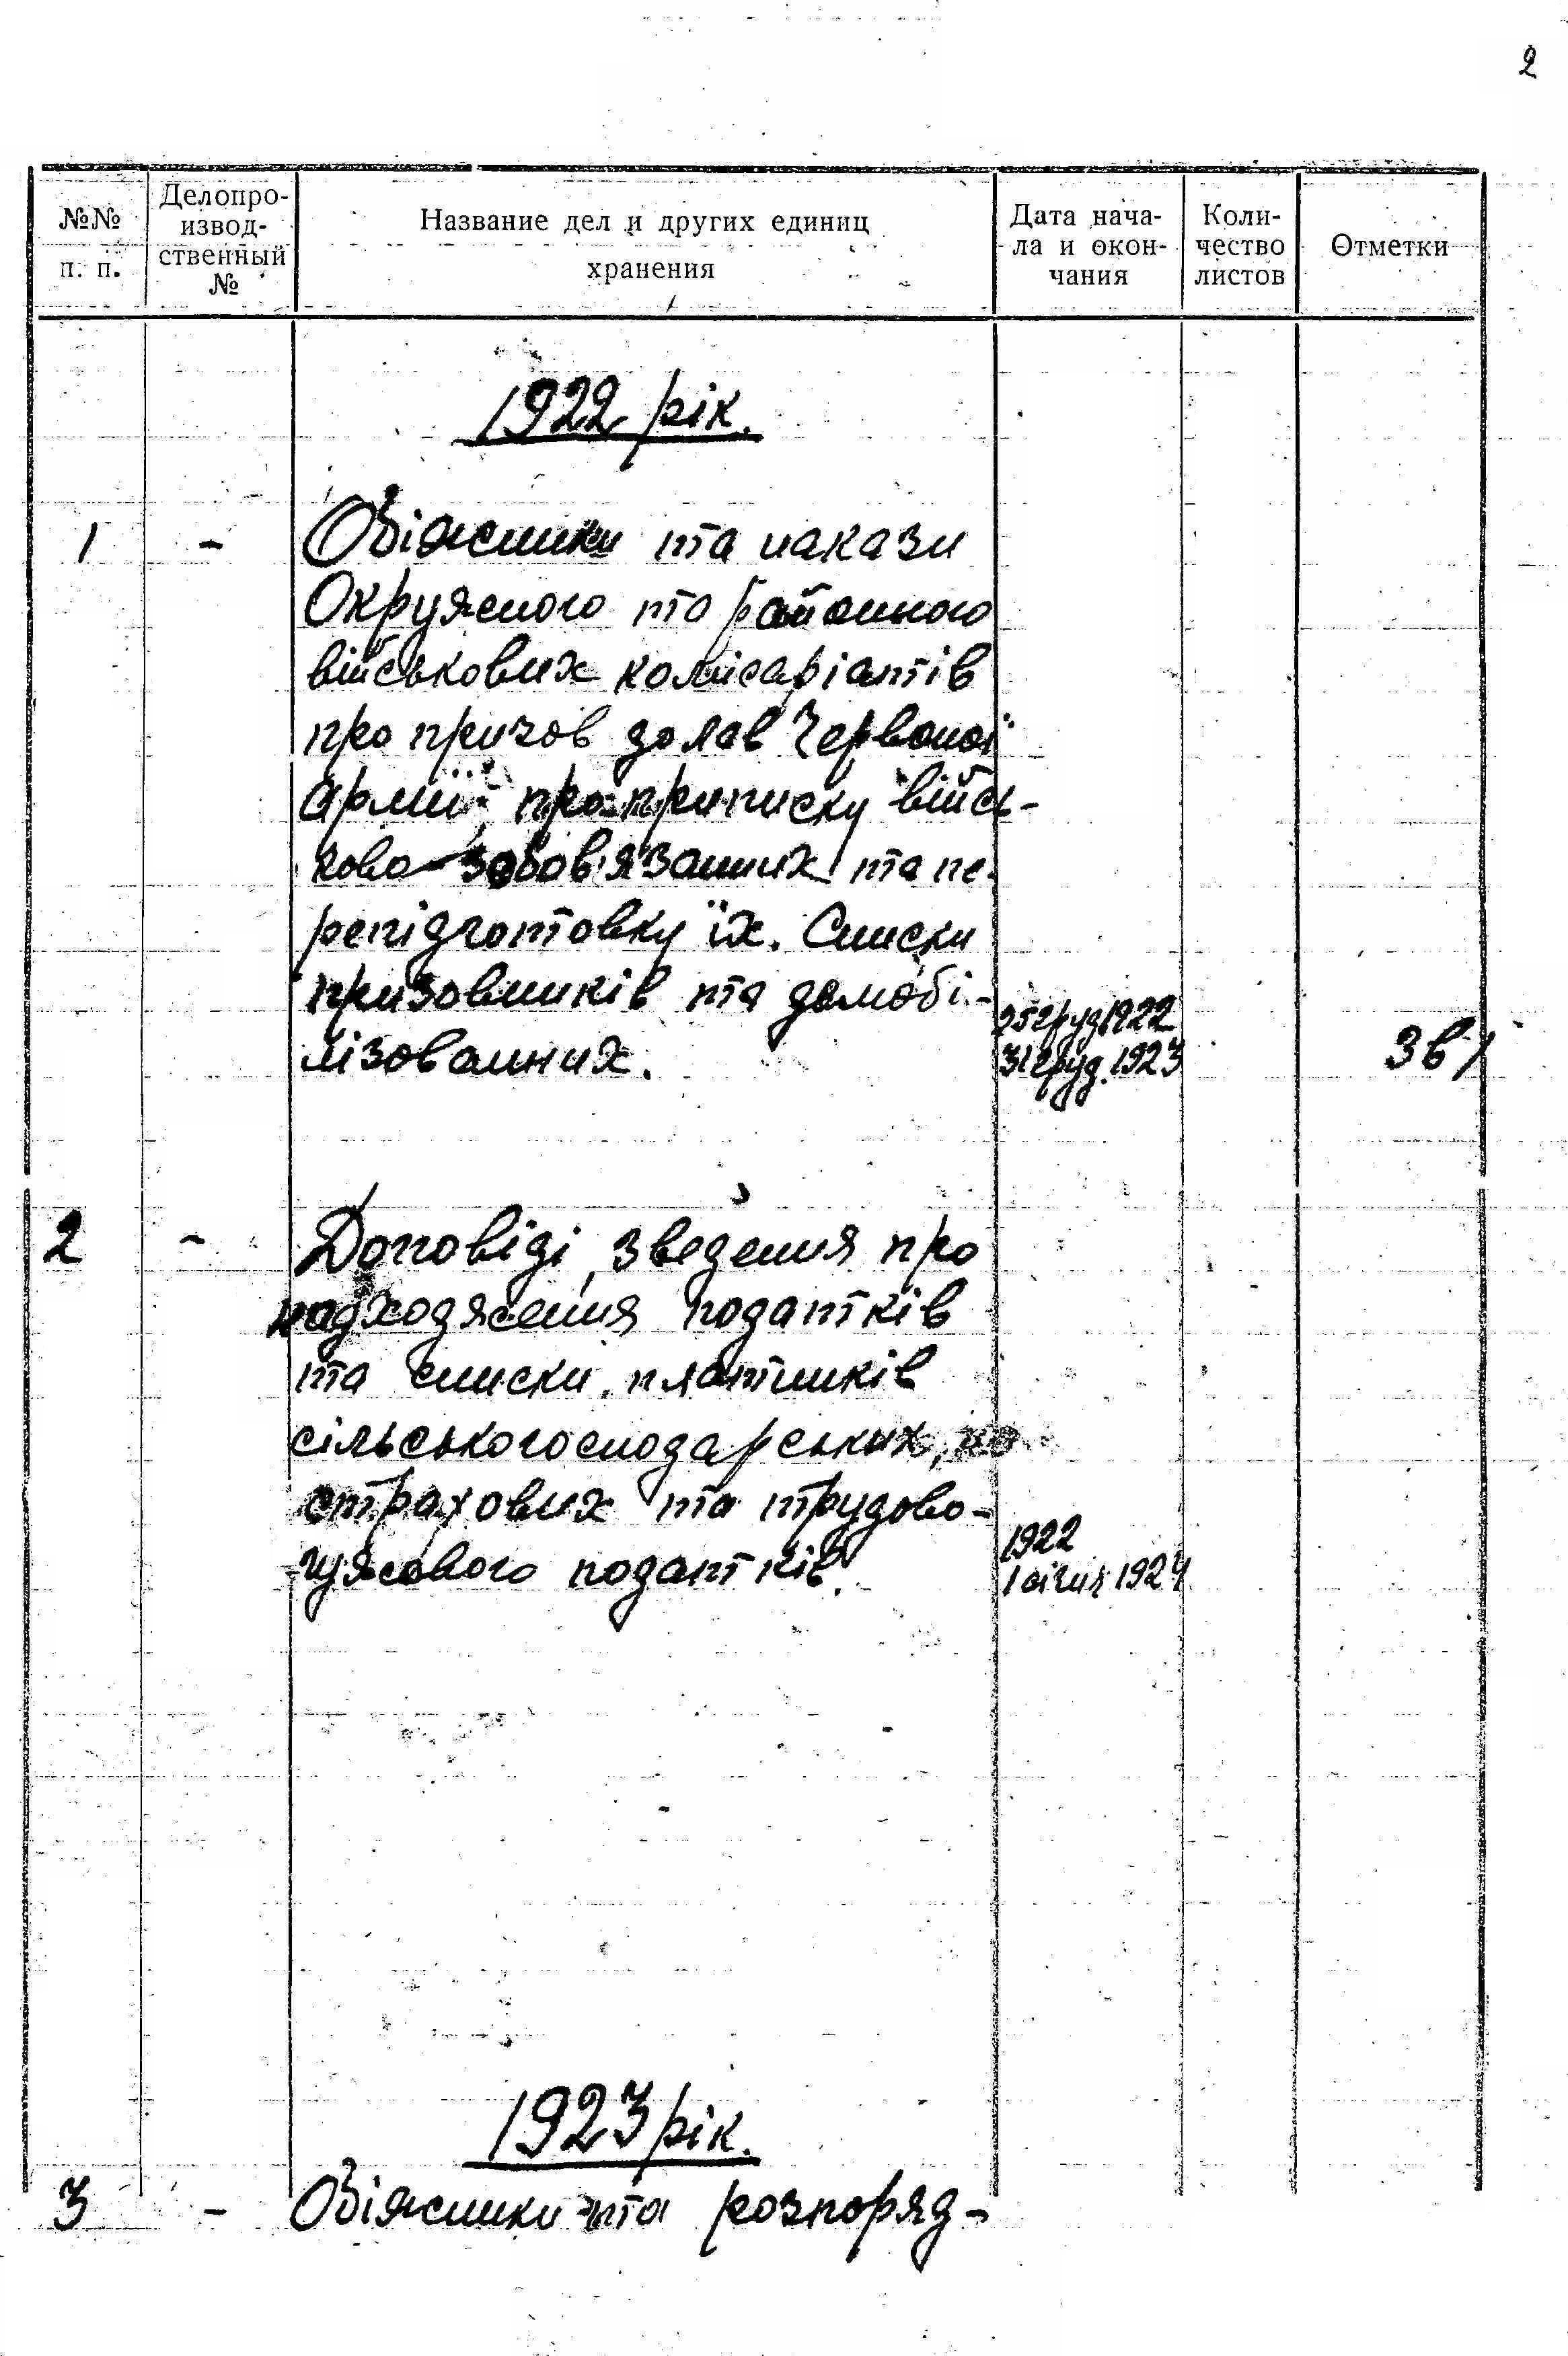 2
№№
п. п.
Делопро-
извод-
ственный
№
Название дел и других единиц
хранения
Дата нача-
ла и окон-
чания
Коли-
чество
листов
Отметки
1922 рік.
1 - Обіжники та накази
Окружного та районного
військових комісаріатів
про призов до лав Червоної
армії, про приписку війсь-
ково-зобов'язанних та пе-
репідготовку їх. Списки
призовників та демобі-
лізованних.
25 груд 1922
31 груд. 1923
2 - Доповіді, зведення про
надходження податків
та списки платників
сільськогосподарських,
страхових та трудово-
гужового податків.
1922
1 січня 1924
1923 рік.
3 - Обіжники та розпоряд-